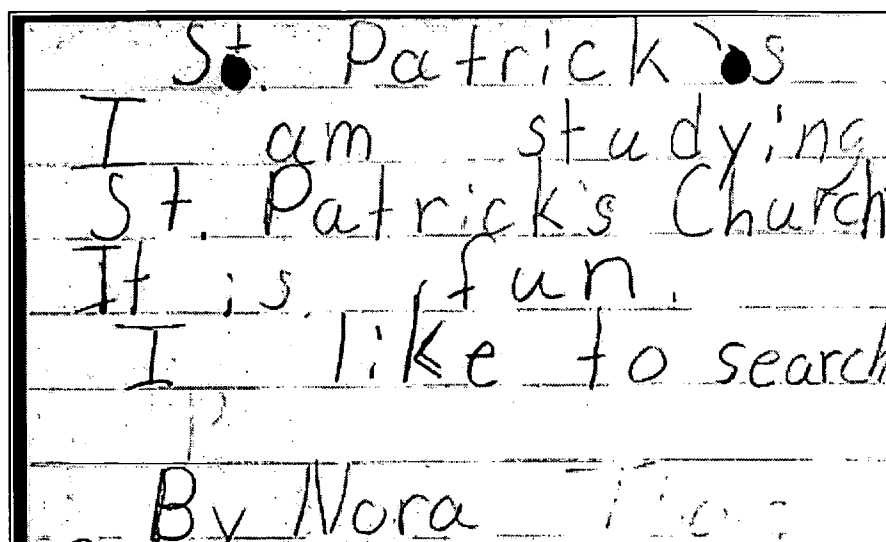 St. Patrick's
I am studying
St. Patrick's Church
It is fun.
I like to search
By Nora